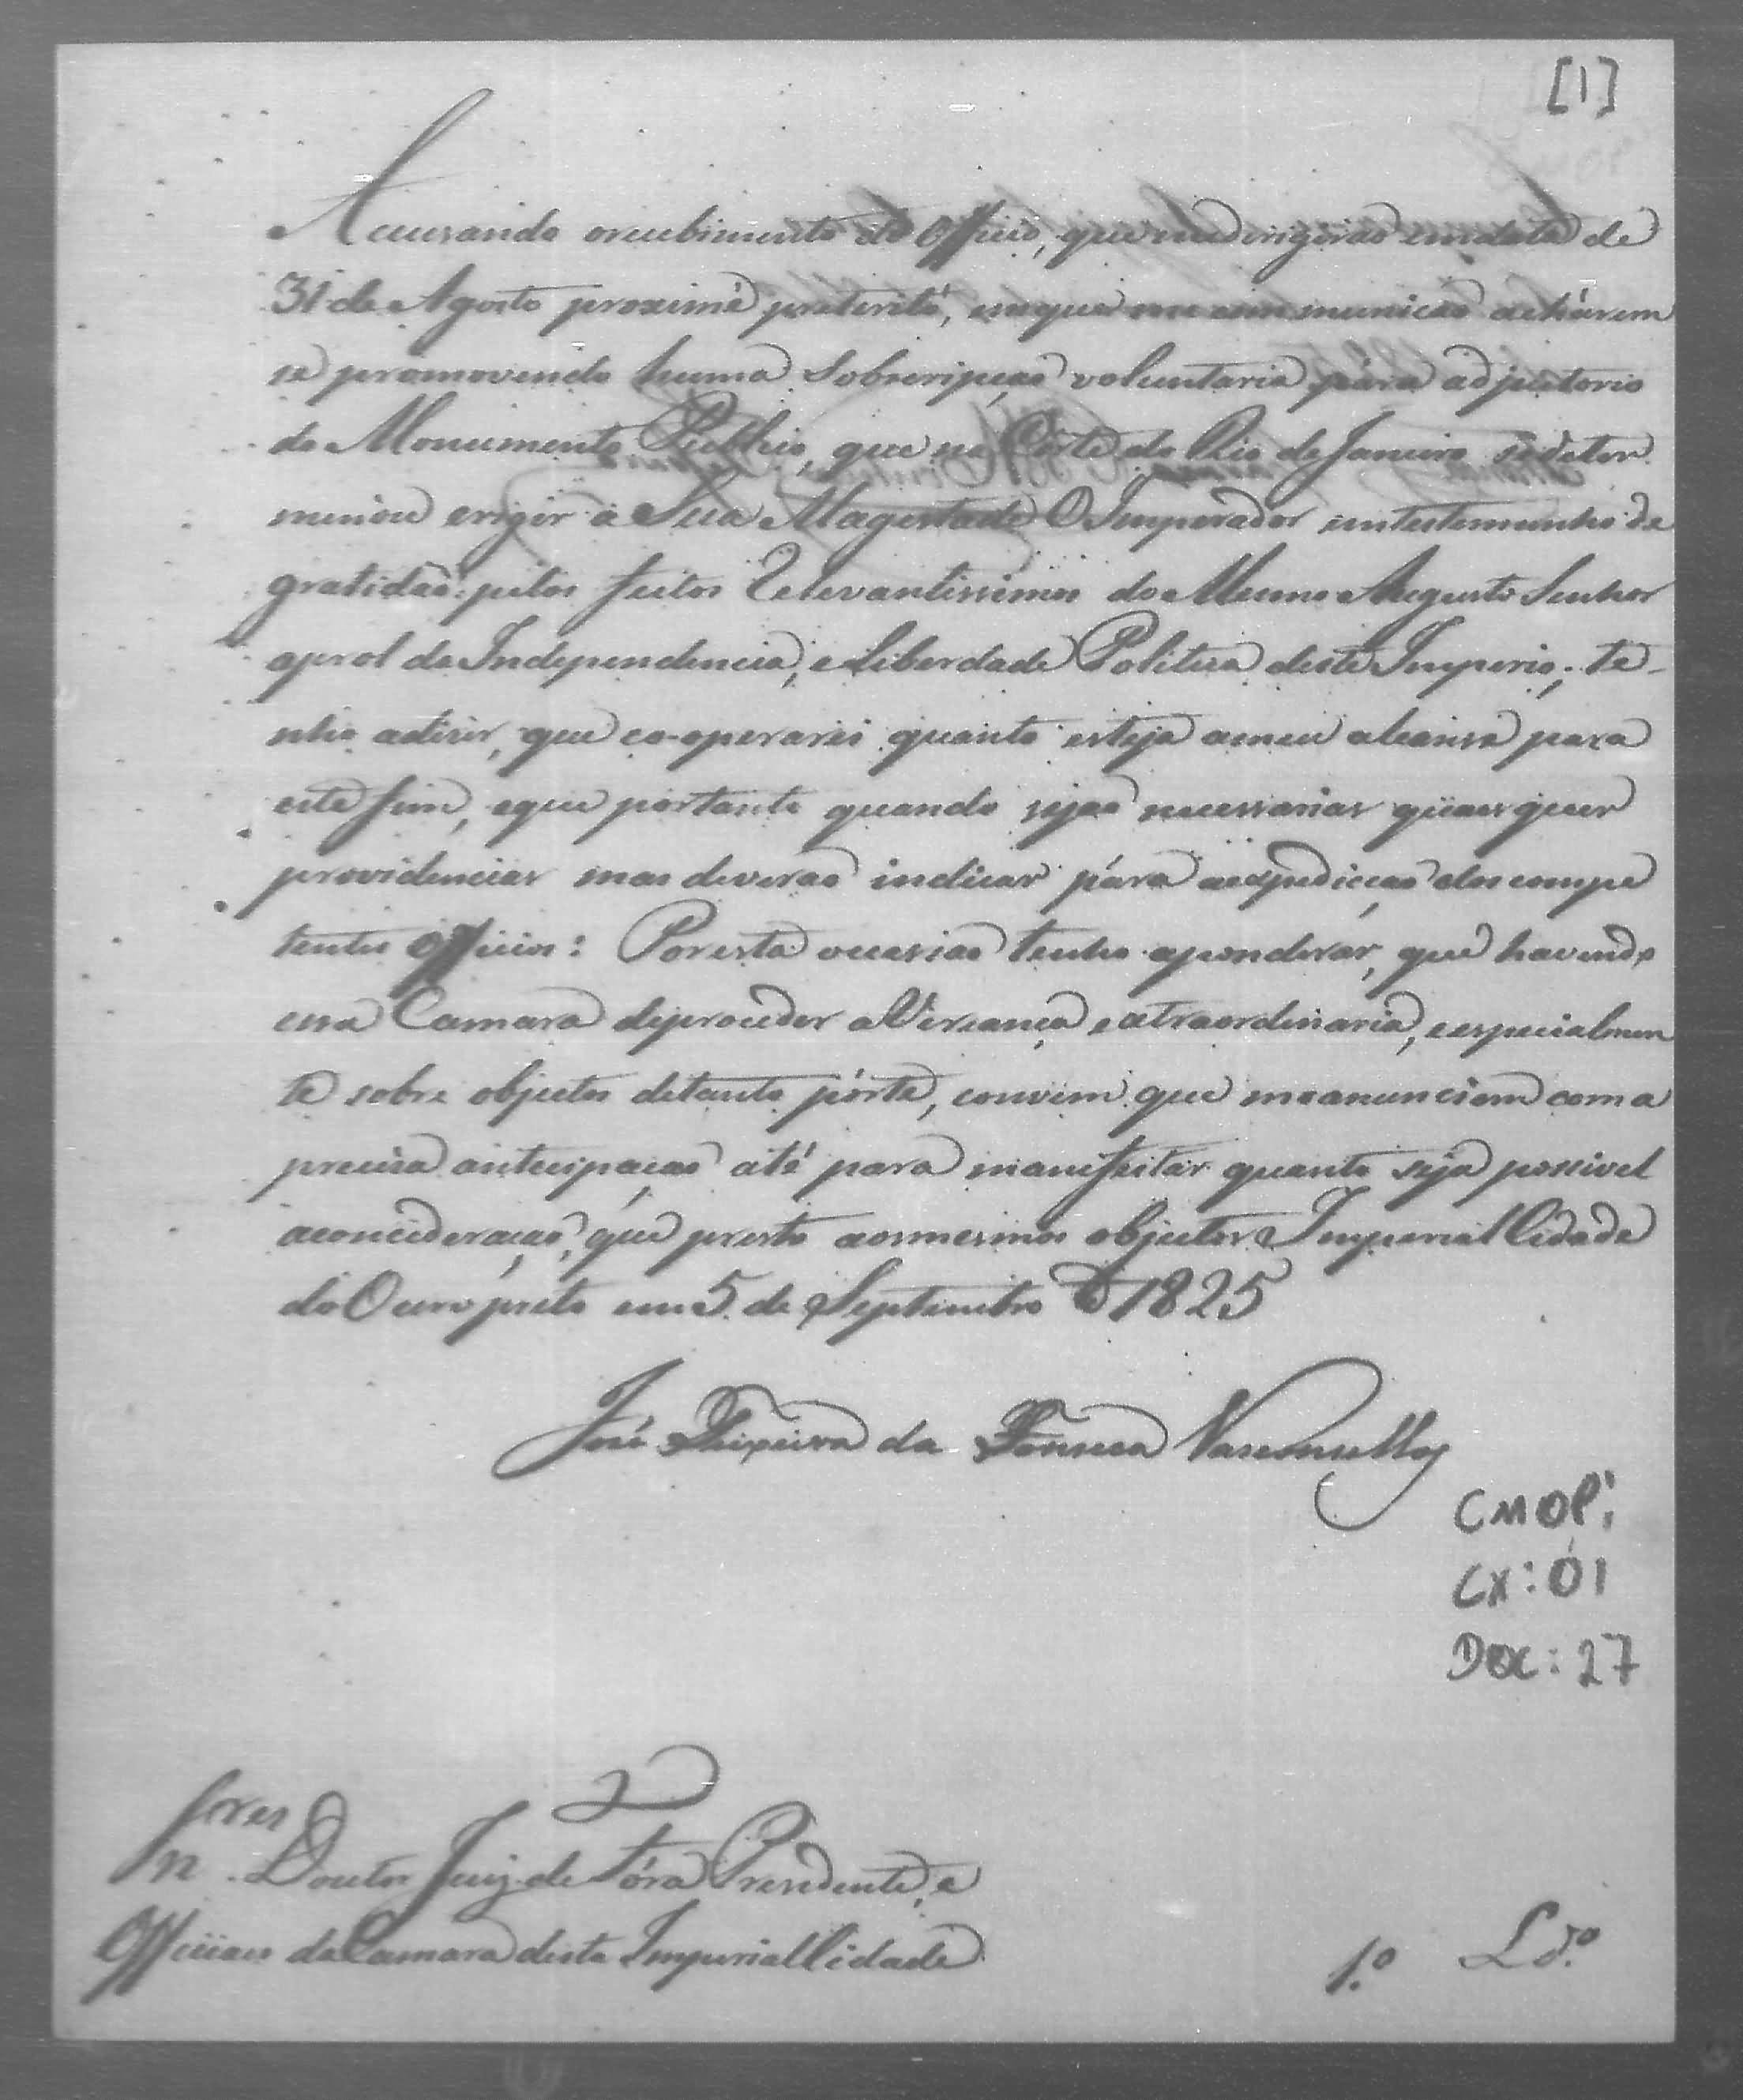 [1]
Accusando o recebimento do Officio, que me dirigirão em data de
31 de Agosto proximé preterito, em que me communicão achárem
se promovendo huma Sobscripção voluntaria pára adjuctorio
do Monumento Publico, que na Côrte do Rio de Janeiro se deter
minou erigir a Sua Magestade O Imperador em testemunho de
gratidão pelos feitos Relevantissimos do Mesmo Augusto Senhor
a prol da Independencia, e Liberdade Politica deste Imperio; te-
nho a dizer, que co-operarei quanto esteja a meu alcanse para
este fim, e que portanto quando sejão necessarias quaesquer
providencias mas deverão indicar pára a expedicção dos compe
tentes Officios: Por esta occasião tenho a ponderár, que havendo
essa Camara de proceder a Vereança extraordinaria, e especialmen
te sobre objectos de tanto pórte, convem que m'o anunciem com a
precisa antecipação até para manifestar quanto seja possivel
a concideração, que presto aos mesmos objectos Imperial Cidade
do Ouro preto em 5 de Septembro de 1825
José Teixeira da Fonseca Vasconcellos
CMOP:
CX: 01
DOC: 27
Snres
Dr. Doutor Juiz de Fóra Presidente, e
Officiaes da Camara desta Imperial Cidade
1.º Ld.º